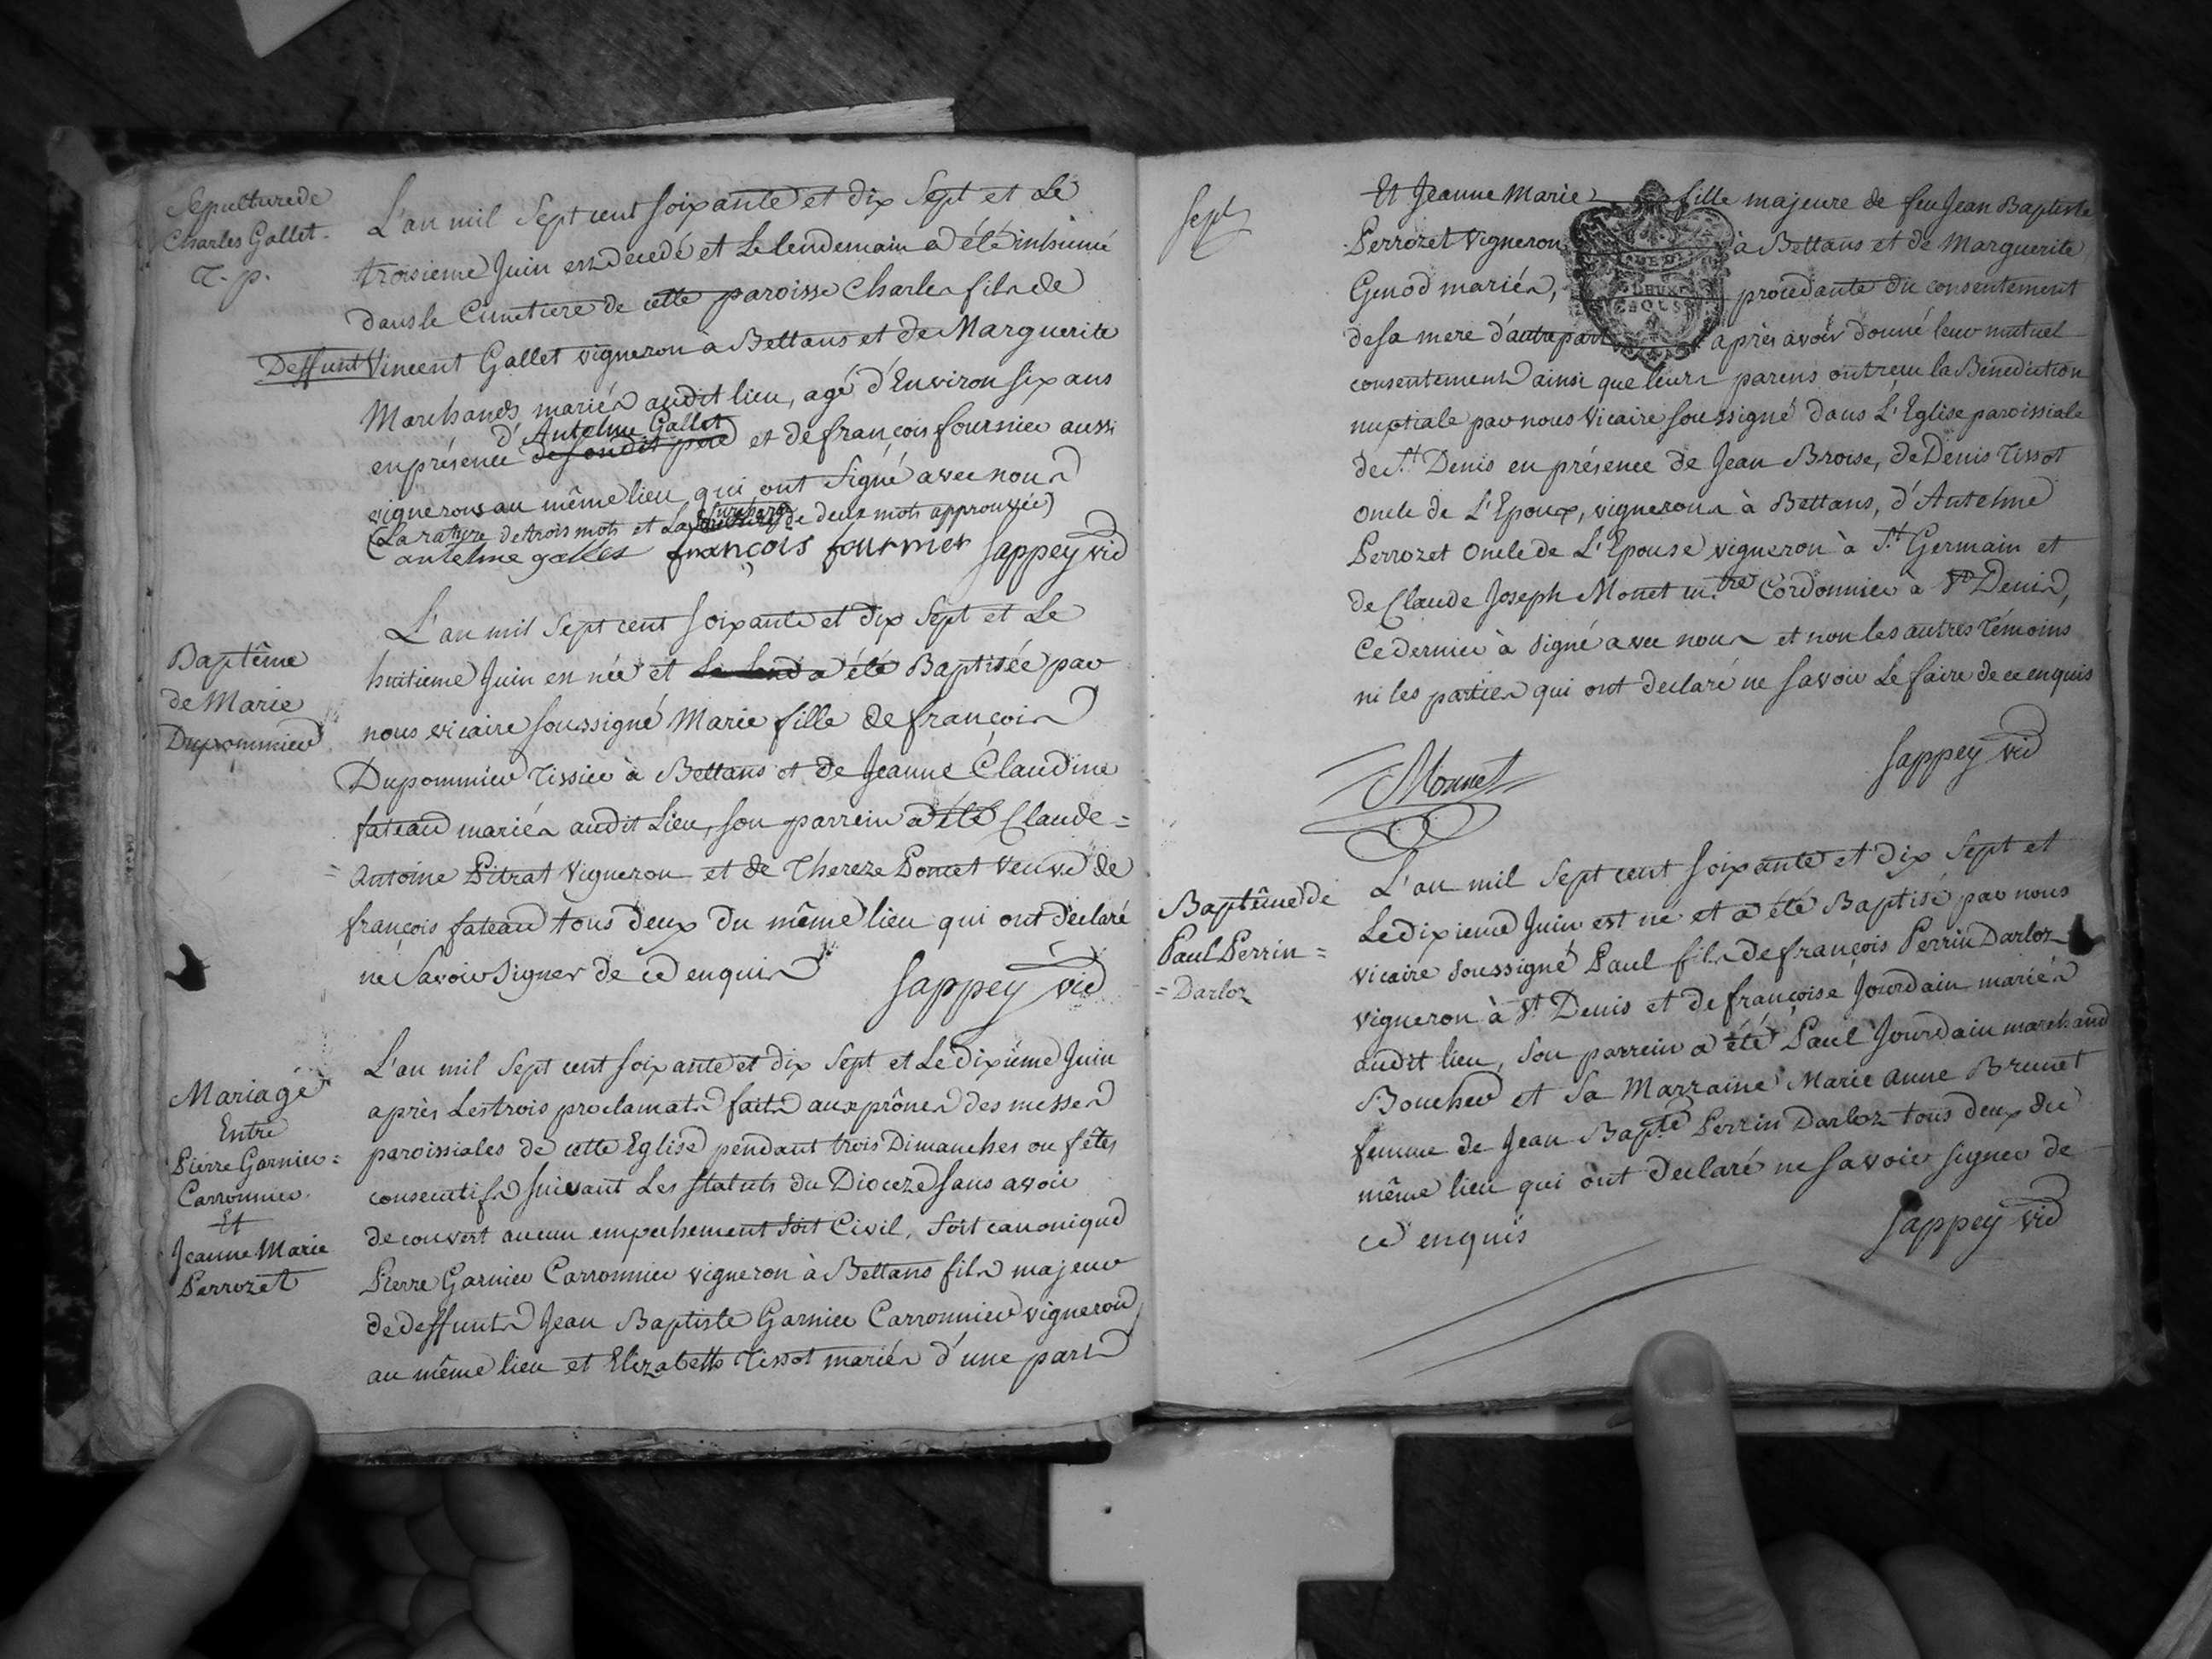 Sepulture de
Charles Gallet.
T. p.
L'an mil Sept cent soixante et dix Sept et Le
troisieme Juin est decedé et Le lendemain a été inhumé
dans le Cimetiere de cette paroisse Charles fils de
Deffunt Vincent Gallet vigneron à Bettans et de Marguerite
Marchand mariés audit lieu, agé d'Environ six ans
d'Antelme Gallet
en présence de sondit pere et de françois fournier aussi
vignerons au même lieu qui ont Signé avec nous
(La rature de trois mots et La surcharge de deux mots approuvée)
antelme gallet françois fournier Sappey vic
Baptême
de Marie
Dupommier
L'an mil Sept cent soixante et dix Sept et Le
huitieme Juin est née et Le lend a été Baptisée par
nous vicaire soussigné Marie fille de françois
Dupommier Tissier à Bettans et de Jeanne Claudine
fateau mariés audit Lieu, son parrein a été Claude =
= Antoine Pitrat Vigneron et de Thereze Poncet veuve de
françois fateau tous deux du même lieu qui ont declaré
ne Savoir Signer de ce enquis
Sappey vic
Mariage
Entre
Pierre Garnier =
Carronnier
Et
Jeanne Marie
Perrozet
L'an mil Sept cent soixante et dix Sept et Le dixième Juin
après Les trois proclamats faits aux prônes des messes
paroissiales de cette Eglise pendant trois Dimanches ou fêtes
consecutifs suivant Les statuts du Dioceze sans avoir
decouvert aucun empechement soit Civil, soit canonique
Pierre Garnier Carronnier vigneron à Bettans fils majeur
de deffunts Jean Baptiste Garnier Carronnier vigneron
au même lieu et Elizabeth Tissot mariés d'une part
Sept
Et Jeanne Marie fille majeure de feu Jean Baptiste
Perrozet Vigneron à Bettans et de Marguerite
Genod mariés, procedante du consentement
de sa mere d'autre part après avoir donné leur mutuel
consentement ainsi que leurs parens ont reçu la Bénédiction
nuptiale par nous Vicaire soussigné dans L'Eglise paroissiale
de St Denis en présence de Jean Broise, de Denis Tissot
oncle de L'Epoux, vignerons à Bettans, d'Antelme
Perrozet oncle de L'Epouse vigneron à St Germain et
de Claude Joseph Monet m.tre Cordonnier à St Denis,
Ce dernier à signé avec nous et non les autres témoins
ni les parties qui ont declaré ne savoir Le faire de ce enquis
Sappey vic
Monnet
Baptême de
Paul Perrin =
= Darloz
L'an mil Sept cent soixante et dix Sept et
Le dixieme Juin est né et a été Baptisé par nous
vicaire soussigné Paul fils de françois Perrin Darloz
vigneron à St Denis et de françoise Jourdain mariés
audit lieu, son parrein a été Paul Jourdain marchand
Boucher et sa Marraine Marie Anne Brunet
femme de Jean Bapte Perrin Darloz tous deux du
même lieu qui ont declaré ne savoir signer de
ce enquis
Sappey vic